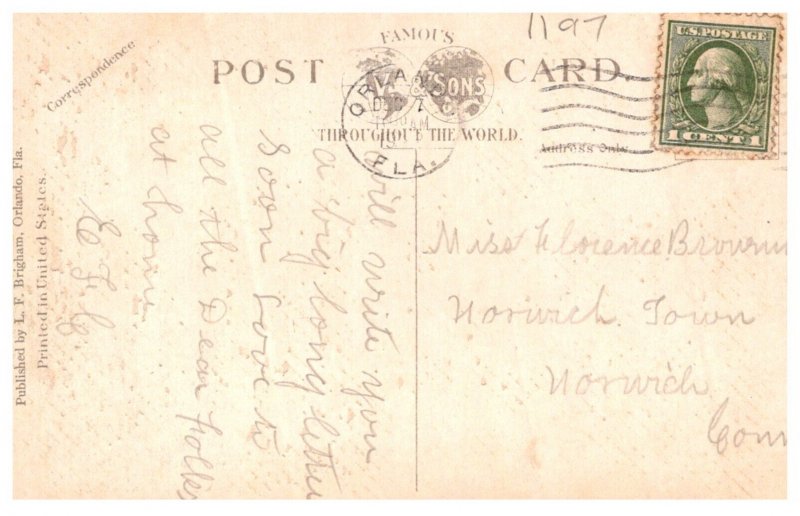 1197
FAMOUS
POST CARD
V. & SONS
THROUGHOUT THE WORLD.
Correspondence
Address Only
U.S. POSTAGE
1 CENT 1
ORLANDO
DEC 7
AM
FLA.
Published by L. F. Brigham, Orlando, Fla.
Printed in United States.
Will write you
a big long letter
soon Love to
all the Dear folks
at home
Miss Florence Browning
Norwich Town
Norwich
Conn